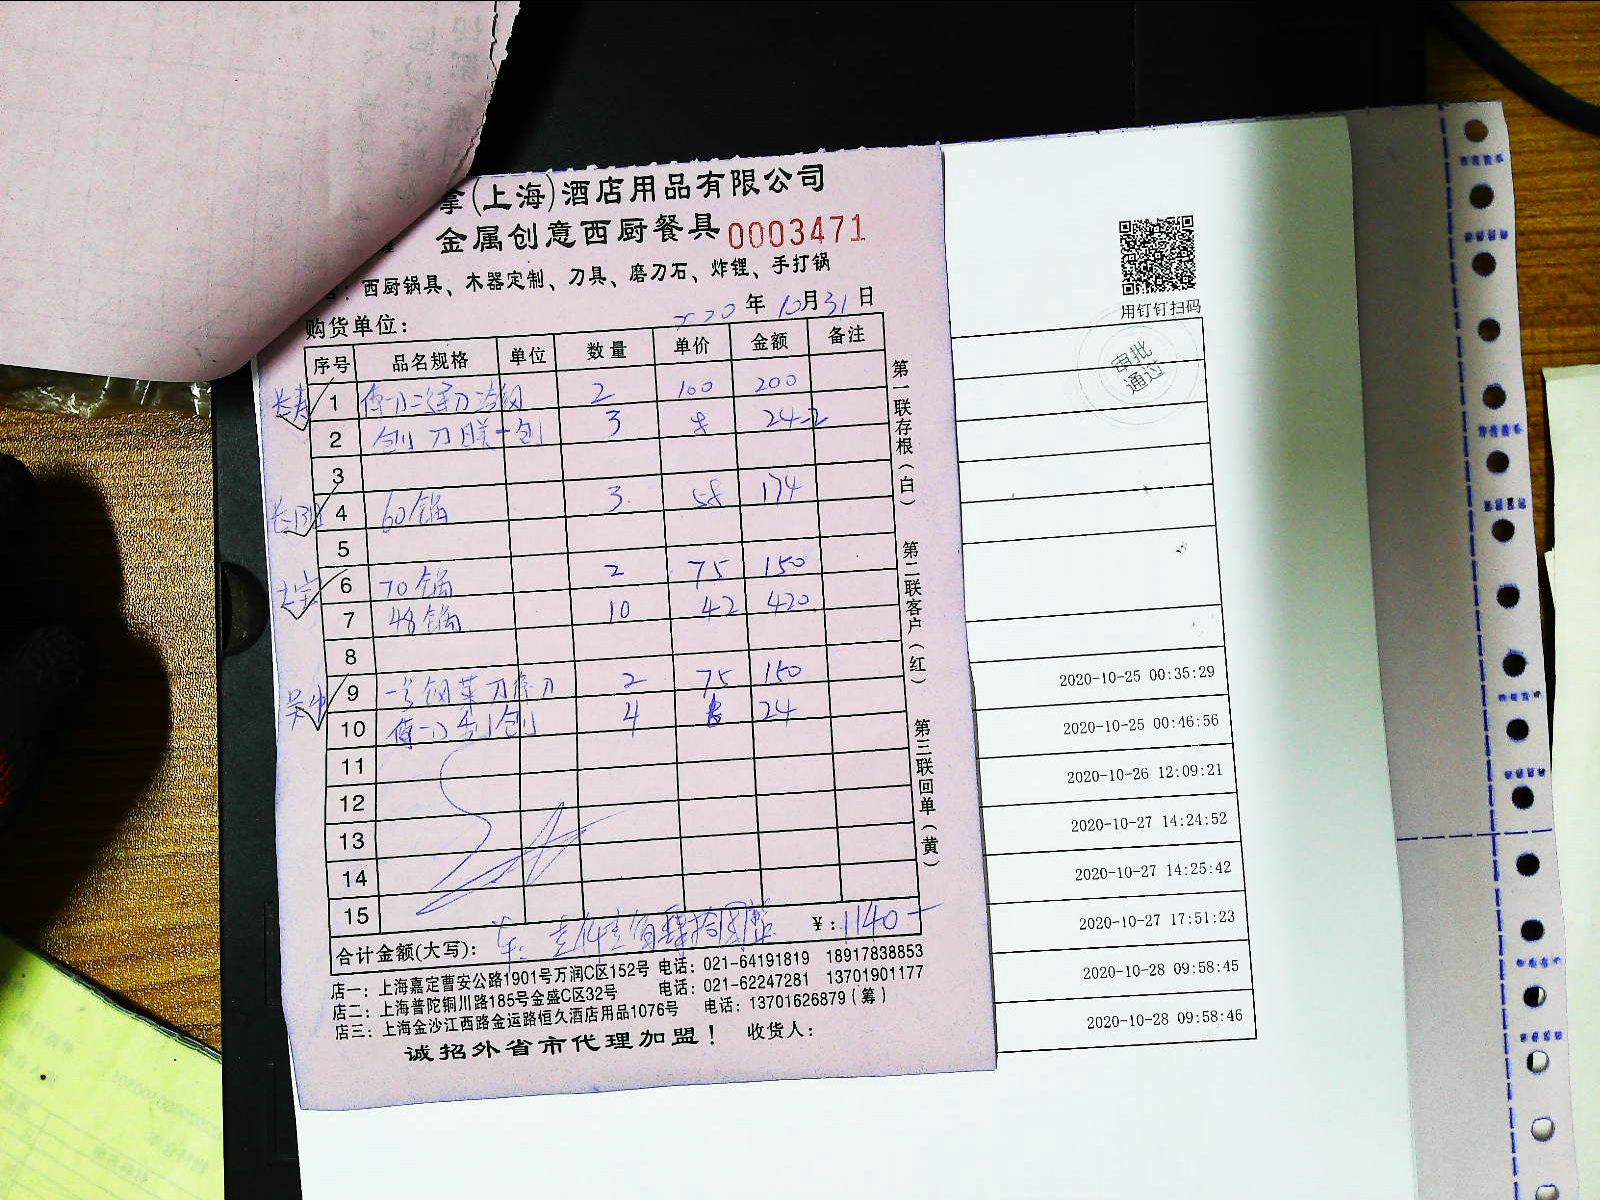 拿(上海)酒店用品有限公司
金属创意西厨餐具 0003471
：西厨锅具、木器定制、刀具、磨刀石、炸锂、手打锅
购货单位： 年 10月31日
序号 品名规格 单位 数量 单价 金额 备注
长寿 1 2 100 200
2 刨刀 3 8 24
3
4 60锅 3 58 174
5
6 70锅 2 75 150
7 48锅 10 42 420
8
9 2 75 150
10 4 6 24
11
12
13
14
15
合计金额(大写)： ¥：1140
店一：上海嘉定曹安公路1901号万润C区152号 电话：021-64191819 18917838853
店二：上海普陀铜川路185号金盛C区32号 电话：021-62247281 13701901177
店三：上海金沙江西路金运路恒久酒店用品1076号 电话：13701626879(筹)
诚招外省市代理加盟！ 收货人：
第一联存根(白)
第二联客户(红)
第三联回单(黄)
用钉钉扫码
审批
通过
2020-10-25 00:35:29
2020-10-25 00:46:56
2020-10-26 12:09:21
2020-10-27 14:24:52
2020-10-27 14:25:42
2020-10-27 17:51:23
2020-10-28 09:58:45
2020-10-28 09:58:46